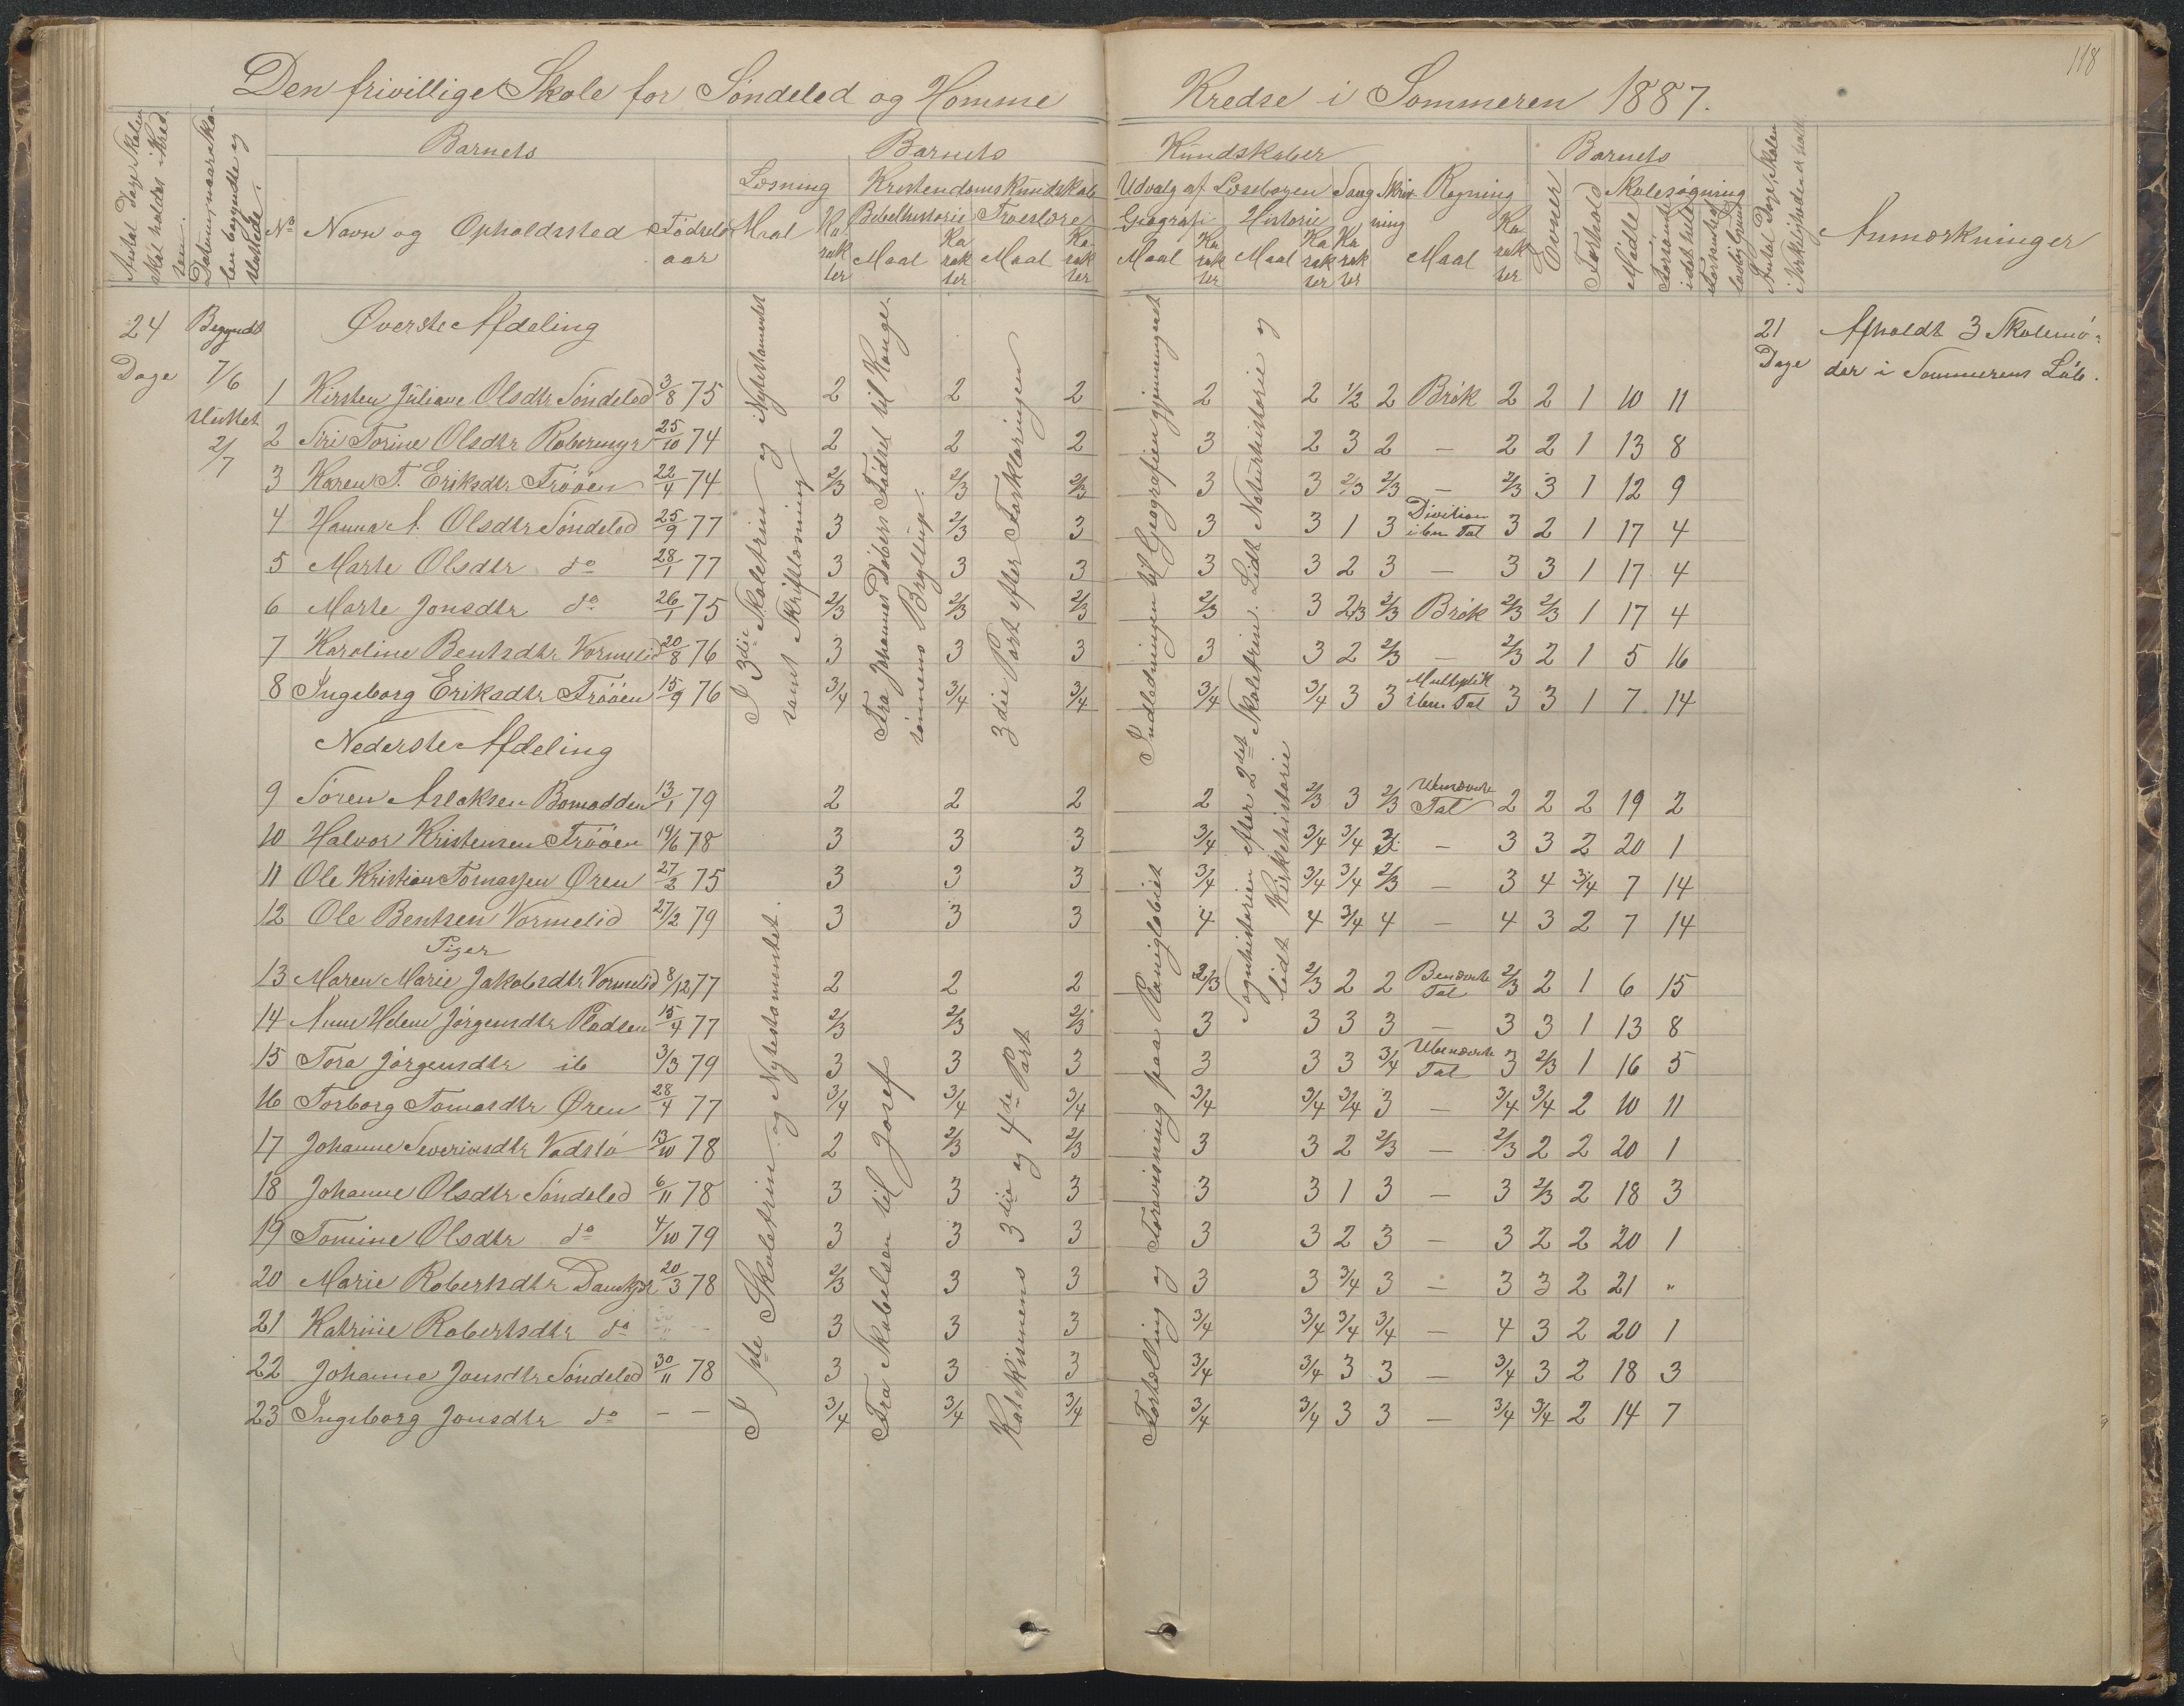 118
Den frivillige Skole for Söndeled og Homme Kredse i Sommeren 1887.
Antal Dage Skolen skal holdes i Kredsen.
Datum, naar Skolen begyndte og sluttede.
Barnets
Barnets Kundskaber
Barnets
Antal Dage, Skolen i Virkeligheden er holdt
Anmærkninger
Læsning Kristendomskundskab Udvalg af Læsebogen Sang Skrivning Regning
Evner Forhold Skolesøgning
No Navn og Opholdssted Fødselsaar
Maal Karakter
Bibelhistorie Troeslære
Maal Karakter Maal Karakter
Geografi Historie
Maal Karakter Maal Karakter Karakter
Maal Karakter
Mødte Forsømte i det hele
24 Dage
Begyndt 7/6
Sluttet 2/7
Øverste Afdeling
21 Dage
Afholdt 3 Skolemö-
der i Sommerens Löb.
1 Kirsten Juliane Olsdtr Söndeled 3/8 75 2 2 2 2 2 1/2 2 Brök 2 2 1 10 11
2 Siri Torine Olsdtr 25/10 74 2 2 2 3 2 3 2 — 2 2 1 13 8
3 Karen T. Eriksdtr Tröåen 22/4 74 2/3 2/3 2/3 3 3 2/3 2/3 — 2/3 3 1 12 9
4 Hanna A. Olsdtr Söndeled 25/9 77 3 2/3 3 3 3 1 3 Division i ben. Tal 3 2 1 17 4
5 Marte Olsdtr do 28/1 77 3 3 3 3 3 2 3 — 3 3 1 17 4
6 Marte Jonsdtr do 26/1 75 2/3 2/3 2/3 2/3 3 2/3 2/3 Brök 2/3 2/3 1 17 4
7 Karoline Bentsdtr Vormelid 20/8 76 3 3 3 3 3 2 2/3 — 2/3 2 1 5 16
8 Ingeborg Eriksdtr Tröåen 15/9 76 3/4 3/4 3/4 3/4 3/4 3 3 Multiplik i ben. Tal 3 3 1 7 14
I 3die Skoletrin og Nytestamentet
samt Skriftlæsning
Fra Johannes Döbers Födsel til Konge-
sönnens Bryllup.
3die Part efter Forklaringen
Indledningen til Geografien gjennemgaaet
Sagnhistorien efter 2det Skoletrin. Lidt Naturhistorie og
lidt Kirkehistorie
Nederste Afdeling
9 Sören Aslaksen Bomodden 13/1 79 2 2 2 2 2/3 3 2/3 Ubenævnte Tal 2 2 2 19 2
10 Halvor Kristensen Tröåen 19/6 78 3 3 3 3/4 3/4 3/4 3 — 3 3 2 20 1
11 Ole Kristian Tomassen Øren 27/2 75 3 3 3 3/4 3/4 3/4 2/3 — 3 4 3/4 7 14
12 Ole Bentsen Vormelid 27/2 79 3 3 3 4 4 3/4 4 — 4 3 2 7 14
Piger
13 Maren Marie Jakobsdtr Vormelid 8/12 77 2 2 2 2/3 2/3 2 2 Benævnte Tal 2/3 2 1 6 15
14 Anne Helene Jörgensdtr Pladsen 15/4 77 2/3 2/3 2/3 3 3 3 3 — 3 3 1 13 8
15 Tora Jörgensdtr ib 3/3 79 3 3 3 3 3 3 3/4 Ubenævnte Tal 3 2/3 1 16 5
16 Torborg Tomasdtr Øren 28/4 77 3/4 3/4 3/4 3/4 3/4 3/4 3 — 3/4 3/4 2 10 11
17 Johanne Severinsdtr 13/10 78 2 2/3 2/3 3 3 2 2/3 — 2/3 2 2 20 1
18 Johanne Olsdtr Söndeled 6/11 78 3 3 3 3 3 1 3 — 3 2/3 2 18 3
19 Tomine Olsdtr do 4/10 79 3 3 3 3 3 2 3 — 3 2 2 20 1
20 Marie Robertsdtr 20/3 78 2/3 3 3 3 3 3/4 3 — 3 3 2 21 "
21 Katrine Robertsdtr do — 3 3 3 3/4 3/4 3/4 3/4 — 4 3 2 20 1
22 Johanne Jonsdtr Söndeled 30/11 78 3 3 3 3/4 3/4 3 3 — 3/4 3 2 18 3
23 Ingeborg Jonsdtr do — — 3/4 3/4 3/4 3/4 3/4 3 3 — 3/4 3/4 2 14 7
I 1ste Skoletrin og Nytestamentet.
Fra Skabelsen til Josef
Katekismens 3die og 4de Part
Fortælling og Forevisning paa Planiglobiet